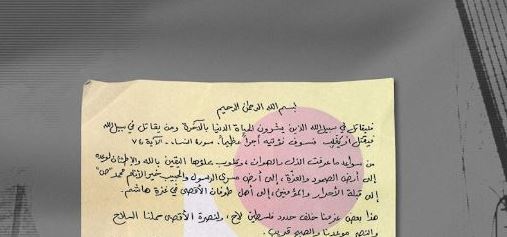 بسم الله الرحمن الرحيم
فليقاتل في سبيل الله الذين يشرون الحياة الدنيا بالآخرة ومن يقاتل في سبيل الله
فيقتل أو يغلب فسوف نؤتيه أجراً عظيماً. سورة النساء، الآية ٧٤
من سواعد ما عرفت الذل والهوان، وقلوب ملؤها اليقين بالله والاطمئنان لوعده
إلى أرض الصمود والعزة، إلى أرض مسرى الرسول والحبيب خير الأنام محمد "ص"
إلى قبلة الأحرار والمؤمنين، إلى أهل طوفان الأقصى في غزة هاشم.
هذا بعض عزمنا خلف حدود فلسطين لاح، ولنصرة الأقصى حملنا السلاح
والنصر موعدنا والصبح قريب.